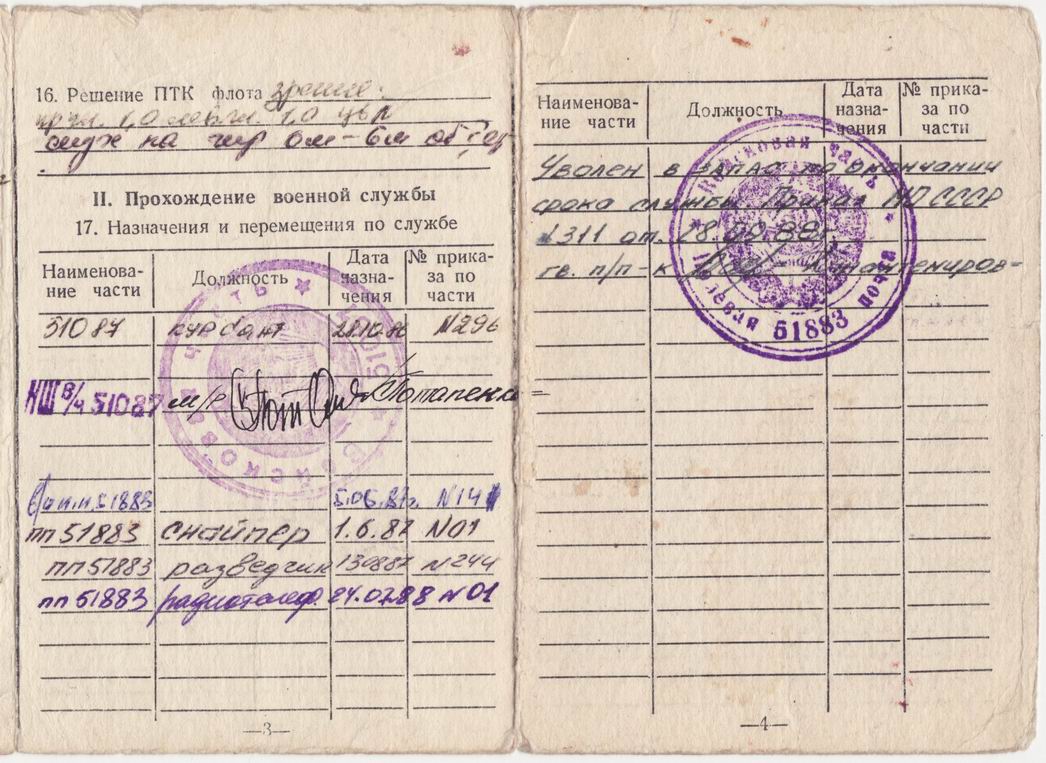 16. Решение ПТК флота зрение:
1,0 1,0
на
II. Прохождение военной службы
17. Назначения и перемещения по службе
Наименова-
ние части
Должность
Дата
назна-
чения
№ прика-
за по
части
51087 курсант 28.10.86 N296
НШ в/ч 51087 м/р Потапенко
Войсковая часть
51883 5.06.87г. N141
пп 51883 снайпер 1.6.87 N01
пп 51883 разведчик 130887 N244
пп 51883 радиотелеф. 24.0288 N01
—3—
Наименова-
ние части
Должность
Дата
назна-
чения
№ прика-
за по
части
Уволен в запас по окончании
срока службы. Приказ МО СССР
311 от. 28.09.88г.
гв. п/п-к
Войсковая часть
полевая почта
51883
—4—